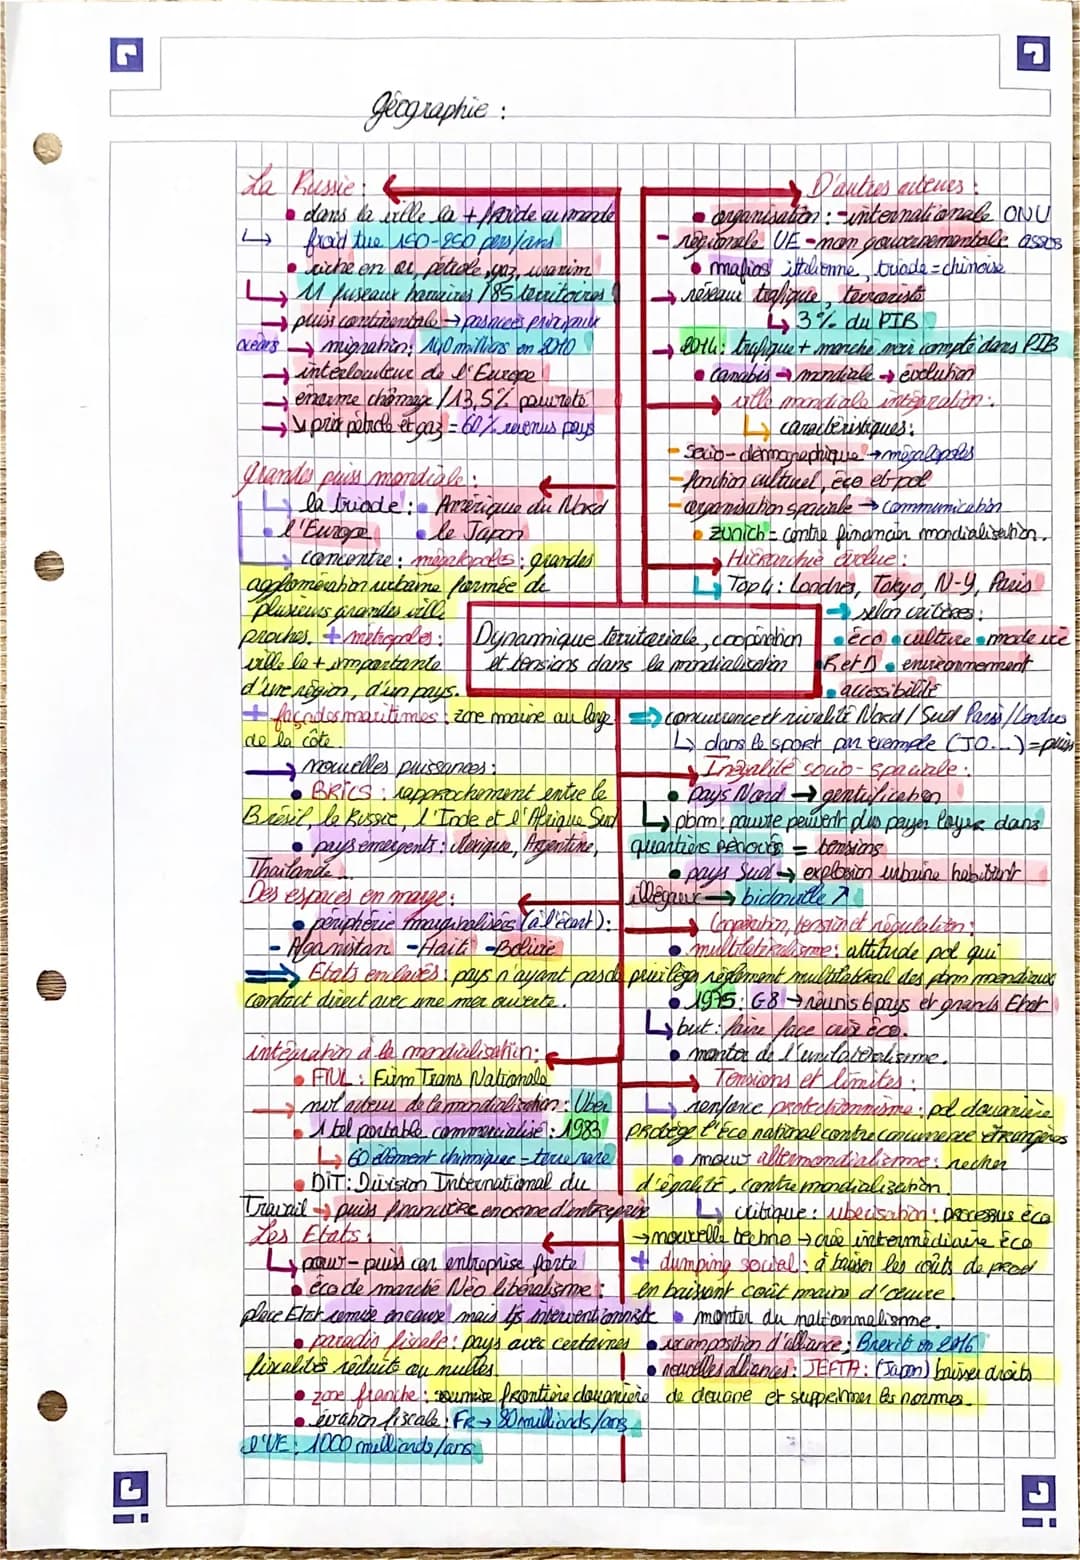 Géographie :
La Russie :
• dans la ville la + froide au monde
↳ froid tue 150-250 pers/ans
• riche en or, pétrole, gaz, uranim
↳ 11 fuseaux horaires / 85 territoires
→ puiss continentale → pas accès principaux
océans → migration : 140 millions en 2010
→ interlocuteur de l'Europe
→ énorme chômage / 13,5% pauvreté
→ ↘ prix pétrole et gaz = 60% revenus pays
Grandes puiss mondiale :
↳ la triade : • Amérique du Nord
• l'Europe • le Japon
↳ concentre : mégalopoles : grandes
agglomération urbaine formée de
plusieurs grandes ville
proches. + métropoles :
ville la + importante
d'une région, d'un pays.
+ façades maritimes : zone marine au large
de la côte.
→ nouvelles puissances :
• BRICS : rapprochement entre le
Brésil, la Russie, l'Inde et l'Afrique Sud
• pays émergents : Mexique, Argentine,
Thaïlande...
Des espaces en marge :
• périphérie marginalisées (à l'écart) :
- Afganistan - Haïti - Bolivie
⇒ Etats enclavés : pays n'ayant pas de
contact direct avec une mer ouverte.
intégration à la mondialisation :
• FTN : Firm Trans Nationale
→ nvl acteur de la mondialisation : Uber
• 1 tel portable commercialisé : 1983
↳ 60 élément chimique = terre rare
• DIT : Division International du
Travail → puiss financière énorme d'entreprise
Les Etats :
↳ pour - puiss car entreprise forte
• éco de marché Néo libéralisme :
place Etat remise en cause mais ts interventionniste
• paradis fiscale : pays avec certaines
fiscalités réduits ou nulles.
• zone franche : soumise frontière douanière
• évation fiscale : FR → 80 milliards/ans
l'UE : 1000 milliards/ans
Dynamique territoriale, coopération
et tensions dans la mondialisation
D'autres acteurs :
• organisation : - internationale ONU
- régionale UE - non gouvernementale assos
• mafias ittalienne, triade = chinoise
→ réseau trafique, terroriste
↳ 3% du PIB
→ 2014 : trafique + marché noir compté dans PIB
• canabis → mondiale → évolution
→ ville mondiale intégration :
↳ caractéristiques :
- Socio-démographique → mégalopoles
- fonction culturel, éco et pol
- organisation spaciale → communication
• zurich = centre financain mondialisation.
→ Hiérarchie évolue :
↳ Top 4 : Londres, Tokyo, N-Y, Paris
→ selon critères :
• éco • culture • mode vie
• R et D • environnement
• accessibilité
⇒ concurrence et rivalité Nord / Sud Paris / Londres
↳ dans le sport par exemple (JO...) = puiss
→ Inégalité socio-spaciale :
• pays Nord → gentification
↳ pbm : pauvre peuvent plus payer loyer dans
quartiers rénovés = tensions
• pays Sud → explosion urbaine habitent
illégaux → bidonville ↗
→ Coopération, tension et régulation :
• multilatéralisme : attitude pol qui
privilégie règlement multilatéral des pbm mondiaux
• 1975 : G8 → réunis 6 pays et grands Etat
↳ but : faire face crise éco.
• montée de l'unilatéralisme.
→ Tensions et limites :
↳ renforce protectionnisme : pol douanière
protège l'éco national contre concurrence étrangères
• mouv altermondialisme : recher
d'égalité, contre mondialization
↳ critique : ubérisation : processus éco
→ nouvelle techno → crée intermédiaire éco
+ dumping social : à baisser les coûts de prod
en baissant coût mains d'œuvre.
• monter du nationnalisme.
• recomposition d'alliance : Brexit en 2016
• nouvelles alliances : JEFTA : (Japon) baisser droits
de douane et supprimer les normes.